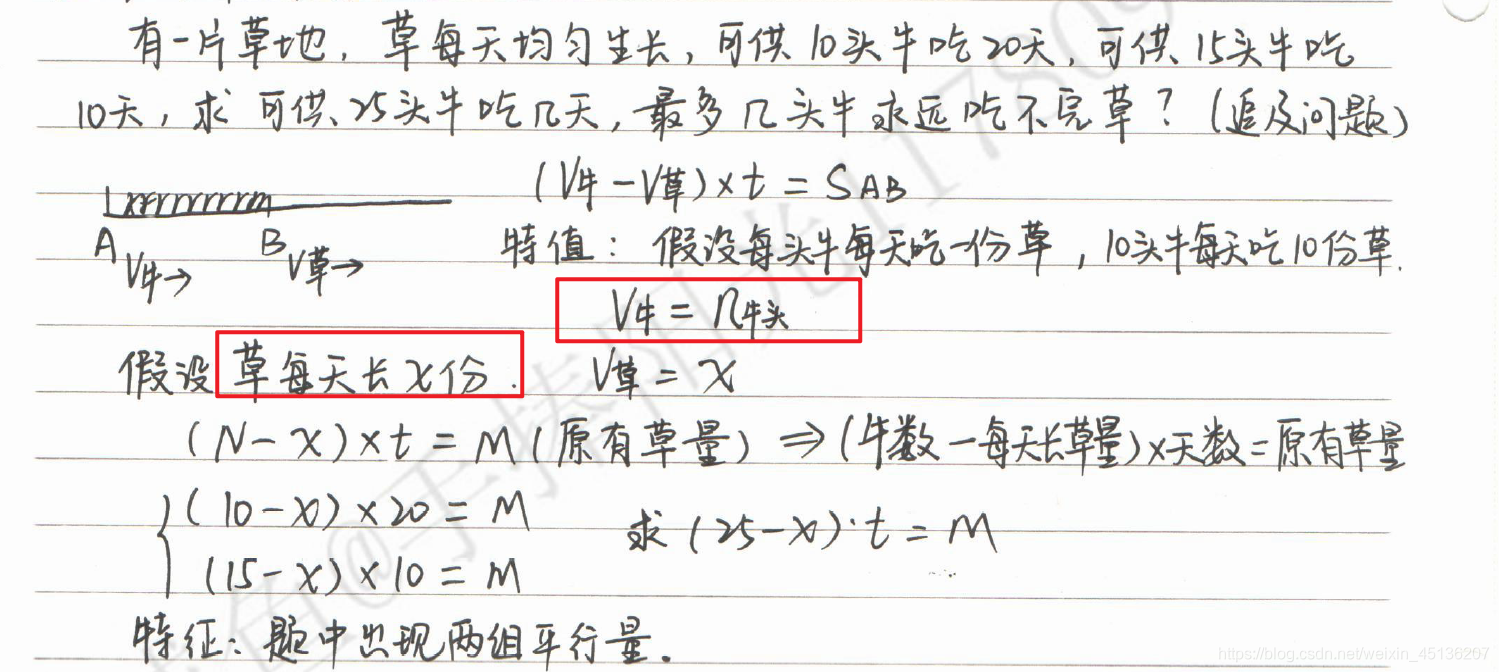 有一片草地，草每天均匀生长，可供10头牛吃20天，可供15头牛吃
10天，求可供25头牛吃几天，最多几头牛永远吃不完草？(追及问题)
(V牛-V草)×t=SAB
A V牛→ B V草→
特值：假设每头牛每天吃一份草，10头牛每天吃10份草.
V牛=n牛头
假设草每天长x份. V草=x
(N-x)×t=M(原有草量)⇒(牛数-每天长草量)×天数=原有草量
(10-x)×20=M
求(25-x)·t=M
(15-x)×10=M
特征：题中出现两组平行量.
https://blog.csdn.net/weixin_45136207